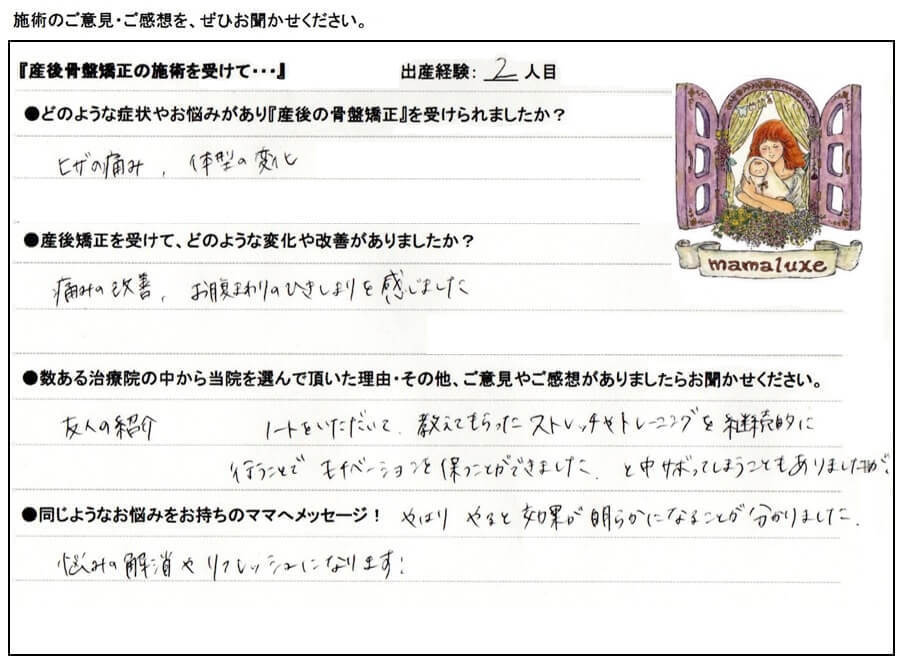 施術のご意見・ご感想を、ぜひお聞かせください。
『産後骨盤矯正の施術を受けて・・・』 出産経験: 2 人目
●どのような症状やお悩みがあり『産後の骨盤矯正』を受けられましたか？
ヒザの痛み、体型の変化
●産後矯正を受けて、どのような変化や改善がありましたか？
痛みの改善、お腹まわりのひきしまりを感じました
mamaluxe
●数ある治療院の中から当院を選んで頂いた理由・その他、ご意見やご感想がありましたらお聞かせください。
友人の紹介 ノートをいただいて、教えてもらったストレッチやトレーニングを継続的に
行うことでモチベーションを保つことができました。と中サボってしまうこともありましたが、
●同じようなお悩みをお持ちのママへメッセージ！ やはり やると効果が明らかになることが分かりました。
悩みの解消やリフレッシュになります！